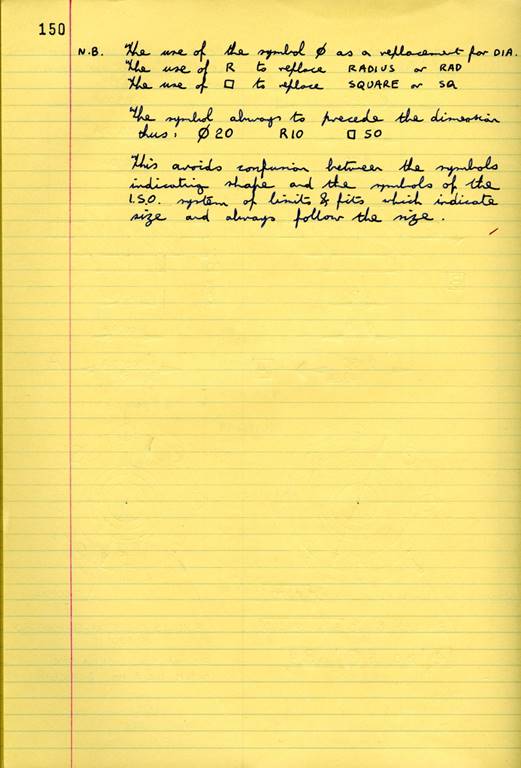 150
N.B. The use of the symbol Ø as a replacement for DIA.
The use of R to replace RADIUS or RAD
The use of □ to replace SQUARE or SQ
The symbol always to precede the dimension
thus: Ø 20 R10 □ 50
This avoids confusion between the symbols
indicating shape and the symbols of the
I.S.O. system of limits & fits which indicate
size and always follow the size.